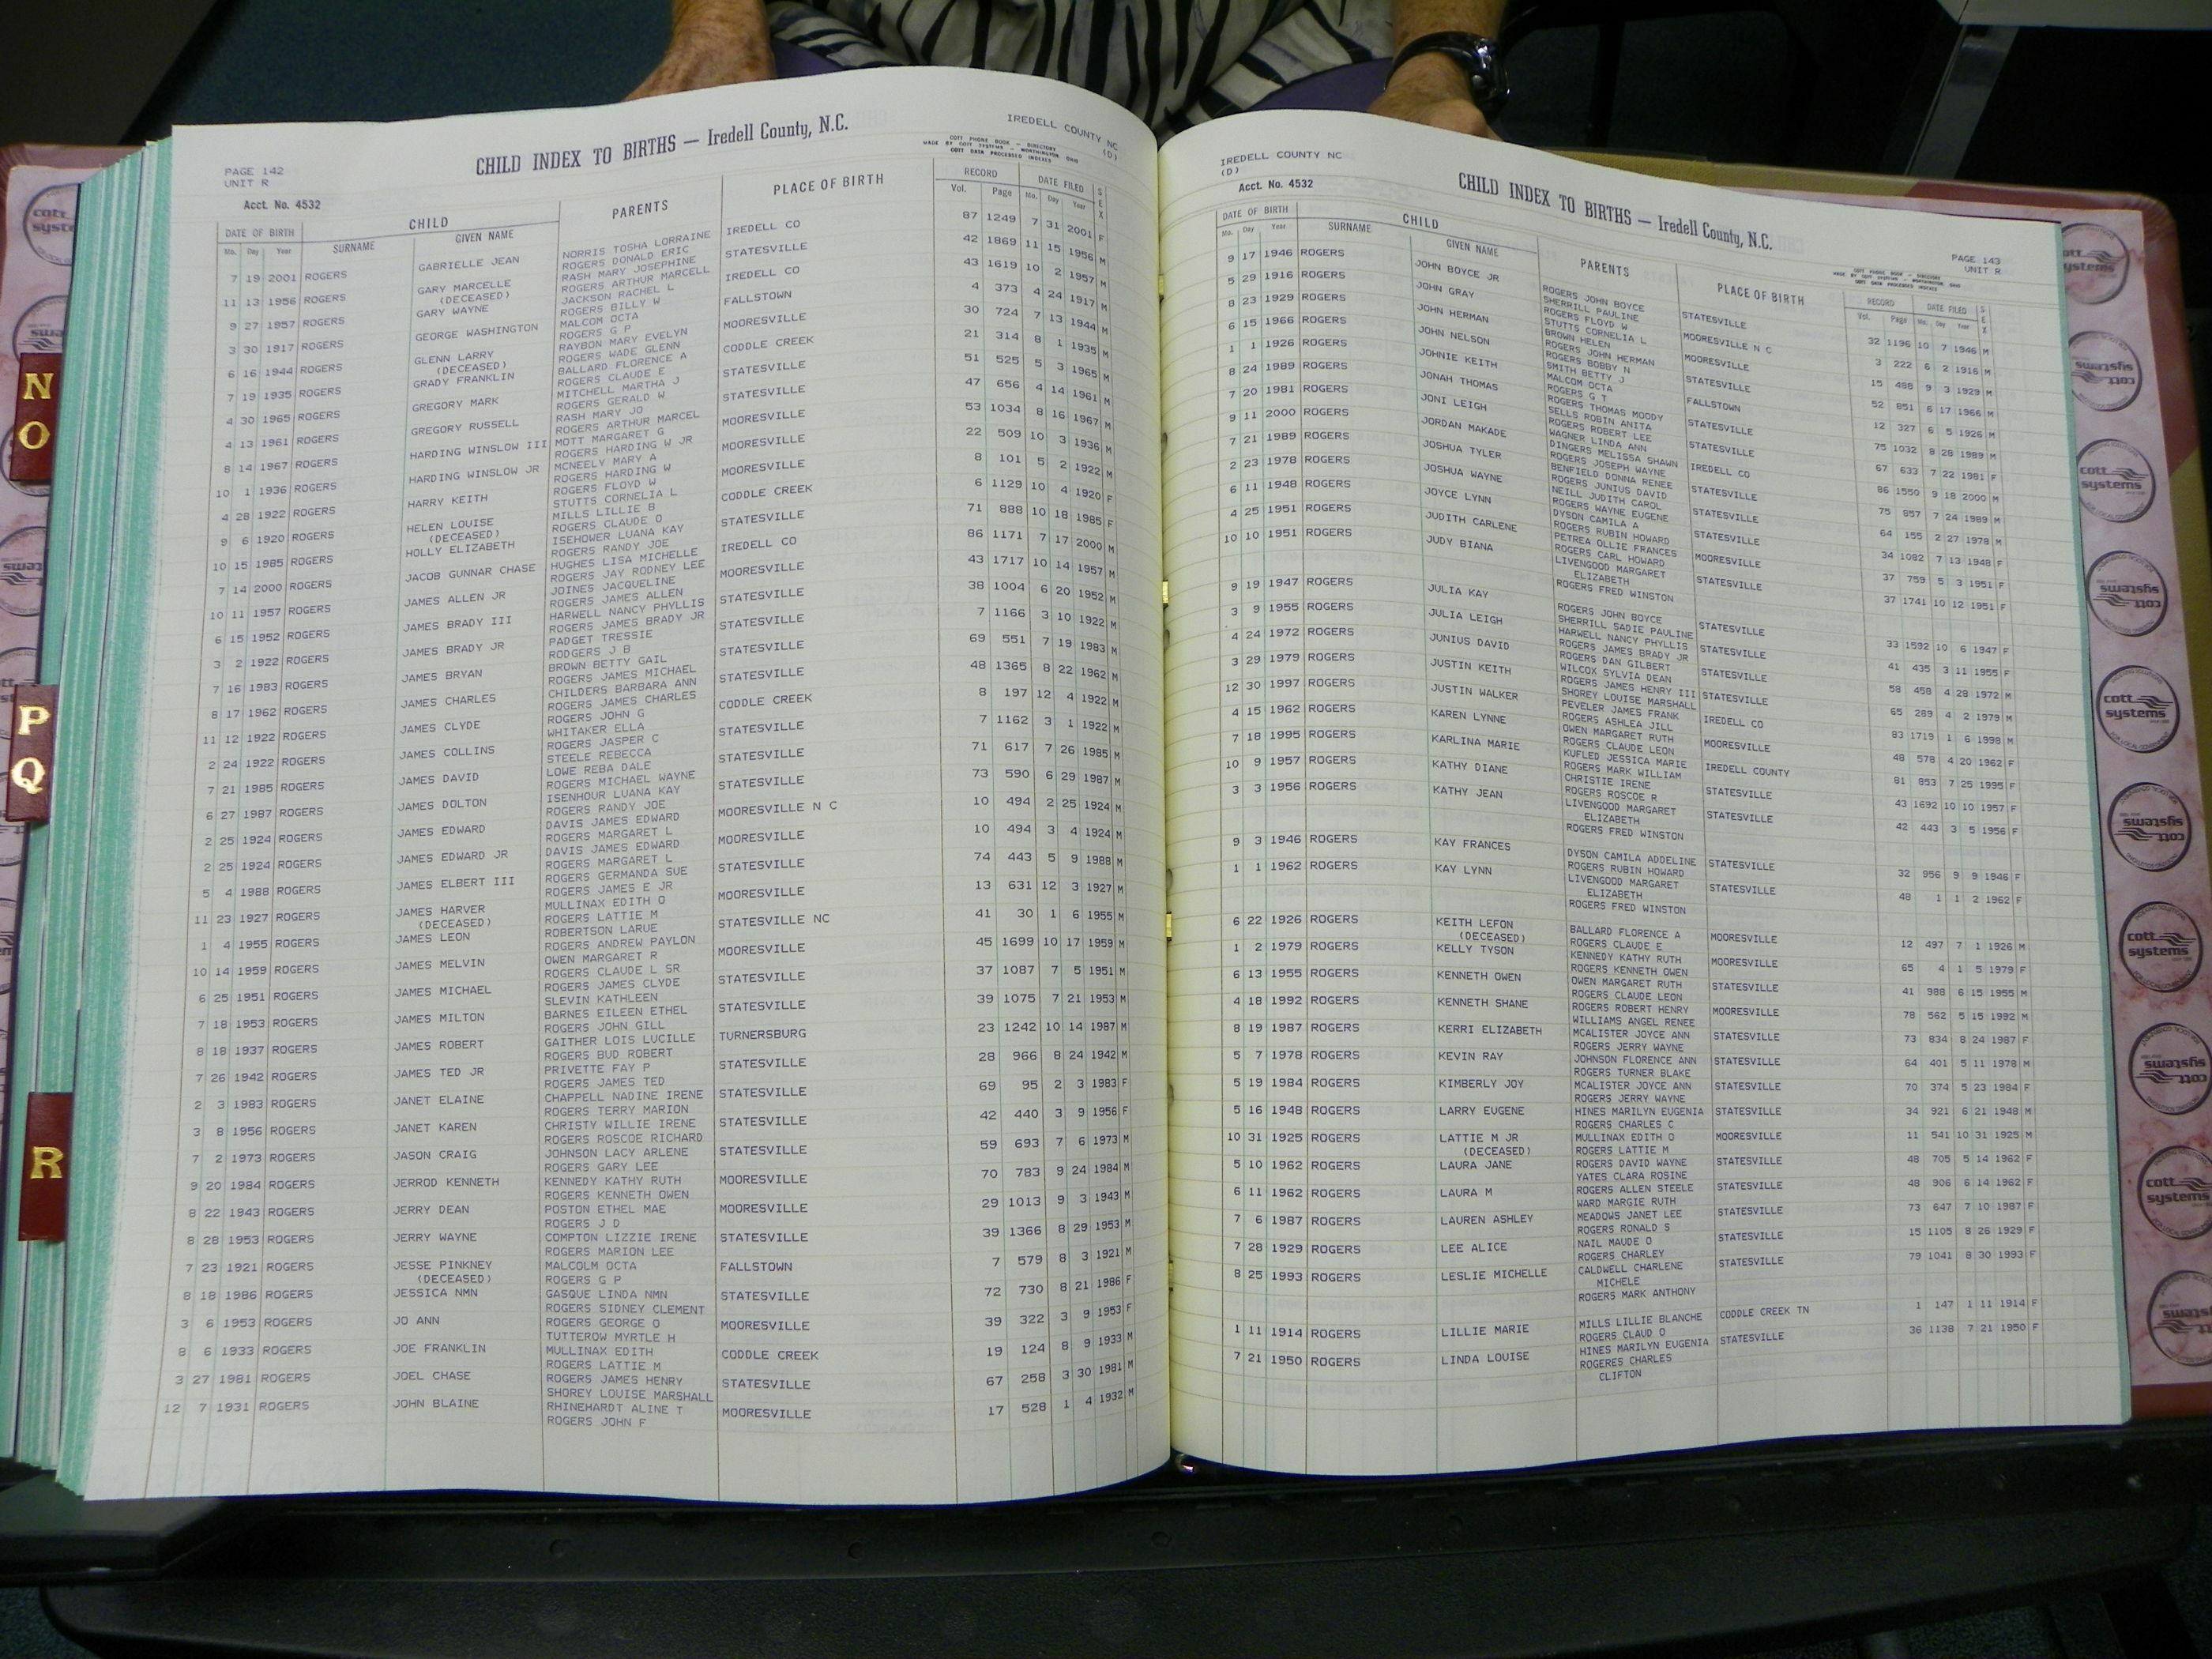 PAGE 142
UNIT R
CHILD INDEX TO BIRTHS — Iredell County, N.C.
IREDELL COUNTY NC
(D)
MADE BY COTT SYSTEMS - WORTHINGTON OHIO
COTT DATA PROCESSED INDEXES
Acct. No. 4532
DATE OF BIRTH CHILD PARENTS PLACE OF BIRTH RECORD DATE FILED SEX
Mo. Day Year SURNAME GIVEN NAME Vol. Page Mo. Day Year
7 19 2001 ROGERS GABRIELLE JEAN NORRIS TOSHA LORRAINE IREDELL CO 87 1249 7 31 2001 F
ROGERS DONALD ERIC
11 13 1956 ROGERS GARY MARCELLE RASH MARY JOSEPHINE STATESVILLE 42 1869 11 15 1956 M
(DECEASED) ROGERS ARTHUR MARCELL
9 27 1957 ROGERS GARY WAYNE JACKSON RACHEL L IREDELL CO 43 1619 10 2 1957 M
ROGERS BILLY W
3 30 1917 ROGERS GEORGE WASHINGTON MALCOM OCTA FALLSTOWN 4 373 4 24 1917 M
ROGERS G P
6 16 1944 ROGERS GLENN LARRY RAYBON MARY EVELYN MOORESVILLE 30 724 7 13 1944 M
(DECEASED) ROGERS WADE GLENN
7 19 1935 ROGERS GRADY FRANKLIN BALLARD FLORENCE A CODDLE CREEK 21 314 8 1 1935 M
ROGERS CLAUDE E
4 30 1965 ROGERS GREGORY MARK MITCHELL MARTHA J STATESVILLE 51 525 5 3 1965 M
ROGERS GERALD W
4 13 1961 ROGERS GREGORY RUSSELL RASH MARY JO STATESVILLE 47 656 4 14 1961 M
ROGERS ARTHUR MARCEL
8 14 1967 ROGERS HARDING WINSLOW III MOTT MARGARET G MOORESVILLE 53 1034 8 16 1967 M
ROGERS HARDING W JR
10 1 1936 ROGERS HARDING WINSLOW JR MCNEELY MARY A MOORESVILLE 22 509 10 3 1936 M
ROGERS HARDING W
4 28 1922 ROGERS HARRY KEITH ROGERS FLOYD W MOORESVILLE 8 101 5 2 1922 M
STUTTS CORNELIA L
9 6 1920 ROGERS HELEN LOUISE MILLS LILLIE B CODDLE CREEK 6 1129 10 4 1920 F
(DECEASED) ROGERS CLAUDE O
10 15 1985 ROGERS HOLLY ELIZABETH ISEHOWER LUANA KAY STATESVILLE 71 888 10 18 1985 F
ROGERS RANDY JOE
7 14 2000 ROGERS JACOB GUNNAR CHASE HUGHES LISA MICHELLE IREDELL CO 86 1171 7 17 2000 M
ROGERS JAY RODNEY LEE
10 11 1957 ROGERS JAMES ALLEN JR JOINES JACQUELINE MOORESVILLE 43 1717 10 14 1957 M
ROGERS JAMES ALLEN
6 15 1952 ROGERS JAMES BRADY III HARWELL NANCY PHYLLIS STATESVILLE 38 1004 6 20 1952 M
ROGERS JAMES BRADY JR
3 2 1922 ROGERS JAMES BRADY JR PADGET TRESSIE STATESVILLE 7 1166 3 10 1922 M
RODGERS J B
7 16 1983 ROGERS JAMES BRYAN BROWN BETTY GAIL STATESVILLE 69 551 7 19 1983 M
ROGERS JAMES MICHAEL
8 17 1962 ROGERS JAMES CHARLES CHILDERS BARBARA ANN STATESVILLE 48 1365 8 22 1962 M
ROGERS JAMES CHARLES
11 12 1922 ROGERS JAMES CLYDE ROGERS JOHN G CODDLE CREEK 8 197 12 4 1922 M
WHITAKER ELLA
2 24 1922 ROGERS JAMES COLLINS ROGERS JASPER C STATESVILLE 7 1162 3 1 1922 M
STEELE REBECCA
7 21 1985 ROGERS JAMES DAVID LOWE REBA DALE STATESVILLE 71 617 7 26 1985 M
ROGERS MICHAEL WAYNE
6 27 1987 ROGERS JAMES DOLTON ISENHOUR LUANA KAY STATESVILLE 73 590 6 29 1987 M
ROGERS RANDY JOE
2 25 1924 ROGERS JAMES EDWARD DAVIS JAMES EDWARD MOORESVILLE N C 10 494 2 25 1924 M
ROGERS MARGARET L
2 25 1924 ROGERS JAMES EDWARD JR DAVIS JAMES EDWARD MOORESVILLE 10 494 3 4 1924 M
ROGERS MARGARET L
5 4 1988 ROGERS JAMES ELBERT III ROGERS GERMANDA SUE STATESVILLE 74 443 5 9 1988 M
ROGERS JAMES E JR
11 23 1927 ROGERS JAMES HARVER MULLINAX EDITH O MOORESVILLE 13 631 12 3 1927 M
(DECEASED) ROGERS LATTIE M
1 4 1955 ROGERS JAMES LEON ROBERTSON LARUE STATESVILLE NC 41 30 1 6 1955 M
ROGERS ANDREW PAYLON
10 14 1959 ROGERS JAMES MELVIN OWEN MARGARET R MOORESVILLE 45 1699 10 17 1959 M
ROGERS CLAUDE L SR
6 25 1951 ROGERS JAMES MICHAEL ROGERS JAMES CLYDE STATESVILLE 37 1087 7 5 1951 M
SLEVIN KATHLEEN
7 18 1953 ROGERS JAMES MILTON BARNES EILEEN ETHEL STATESVILLE 39 1075 7 21 1953 M
ROGERS JOHN GILL
8 18 1937 ROGERS JAMES ROBERT GAITHER LOIS LUCILLE TURNERSBURG 23 1242 10 14 1987 M
ROGERS BUD ROBERT
7 26 1942 ROGERS JAMES TED JR PRIVETTE FAY P STATESVILLE 28 966 8 24 1942 M
ROGERS JAMES TED
2 3 1983 ROGERS JANET ELAINE CHAPPELL NADINE IRENE STATESVILLE 69 95 2 3 1983 F
ROGERS TERRY MARION
3 8 1956 ROGERS JANET KAREN CHRISTY WILLIE IRENE STATESVILLE 42 440 3 9 1956 F
ROGERS ROSCOE RICHARD
7 2 1973 ROGERS JASON CRAIG JOHNSON LACY ARLENE STATESVILLE 59 693 7 6 1973 M
ROGERS GARY LEE
9 20 1984 ROGERS JERROD KENNETH KENNEDY KATHY RUTH MOORESVILLE 70 783 9 24 1984 M
ROGERS KENNETH OWEN
8 22 1943 ROGERS JERRY DEAN POSTON ETHEL MAE MOORESVILLE 29 1013 9 3 1943 M
ROGERS J D
8 28 1953 ROGERS JERRY WAYNE COMPTON LIZZIE IRENE STATESVILLE 39 1366 8 29 1953 M
ROGERS MARION LEE
7 23 1921 ROGERS JESSE PINKNEY MALCOLM OCTA FALLSTOWN 7 579 8 3 1921 M
(DECEASED) ROGERS G P
8 18 1986 ROGERS JESSICA NMN GASQUE LINDA NMN STATESVILLE 72 730 8 21 1986 F
ROGERS SIDNEY CLEMENT
3 6 1953 ROGERS JO ANN ROGERS GEORGE O MOORESVILLE 39 322 3 9 1953 F
TUTTEROW MYRTLE H
8 6 1933 ROGERS JOE FRANKLIN MULLINAX EDITH CODDLE CREEK 19 124 8 9 1933 M
ROGERS LATTIE M
3 27 1981 ROGERS JOEL CHASE ROGERS JAMES HENRY STATESVILLE 67 258 3 30 1981 M
SHOREY LOUISE MARSHALL
12 7 1931 ROGERS JOHN BLAINE RHINEHARDT ALINE T MOORESVILLE 17 528 1 4 1932 M
ROGERS JOHN F
IREDELL COUNTY NC
(D)
Acct. No. 4532
CHILD INDEX TO BIRTHS — Iredell County, N.C.
PAGE 143
UNIT R
DATE OF BIRTH CHILD PARENTS PLACE OF BIRTH RECORD DATE FILED SEX
Mo. Day Year SURNAME GIVEN NAME Vol. Page Mo. Day Year
9 17 1946 ROGERS JOHN BOYCE JR ROGERS JOHN BOYCE STATESVILLE 32 1196 10 7 1946 M
SHERRILL PAULINE
5 29 1916 ROGERS JOHN GRAY ROGERS FLOYD W MOORESVILLE N C 3 222 6 2 1916 M
STUTTS CORNELIA L
8 23 1929 ROGERS JOHN HERMAN BROWN HELEN MOORESVILLE 15 488 9 3 1929 M
ROGERS JOHN HERMAN
6 15 1966 ROGERS JOHN NELSON ROGERS BOBBY N STATESVILLE 52 851 6 17 1966 M
SMITH BETTY J
1 1 1926 ROGERS JOHNIE KEITH MALCOM OCTA FALLSTOWN 12 327 6 5 1926 M
ROGERS G T
8 24 1989 ROGERS JONAH THOMAS ROGERS THOMAS MOODY STATESVILLE 75 1032 8 28 1989 M
SELLS ROBIN ANITA
7 20 1981 ROGERS JONI LEIGH ROGERS ROBERT LEE STATESVILLE 67 633 7 22 1981 F
WAGNER LINDA ANN
9 11 2000 ROGERS JORDAN MAKADE DINGERS MELISSA SHAWN IREDELL CO 86 1550 9 18 2000 M
ROGERS JOSEPH WAYNE
7 21 1989 ROGERS JOSHUA TYLER BENFIELD DONNA RENEE STATESVILLE 75 857 7 24 1989 M
ROGERS JUNIUS DAVID
2 23 1978 ROGERS JOSHUA WAYNE NEILL JUDITH CAROL STATESVILLE 64 155 2 27 1978 M
ROGERS WAYNE EUGENE
6 11 1948 ROGERS JOYCE LYNN DYSON CAMILA A STATESVILLE 34 1082 7 13 1948 F
ROGERS RUBIN HOWARD
4 25 1951 ROGERS JUDITH CARLENE PETREA OLLIE FRANCES MOORESVILLE 37 759 5 3 1951 F
ROGERS CARL HOWARD
10 10 1951 ROGERS JUDY BIANA LIVENGOOD MARGARET STATESVILLE 37 1741 10 12 1951 F
ELIZABETH
ROGERS FRED WINSTON
9 19 1947 ROGERS JULIA KAY ROGERS JOHN BOYCE STATESVILLE 33 1592 10 6 1947 F
SHERRILL SADIE PAULINE
3 9 1955 ROGERS JULIA LEIGH HARWELL NANCY PHYLLIS STATESVILLE 41 435 3 11 1955 F
ROGERS JAMES BRADY JR
4 24 1972 ROGERS JUNIUS DAVID ROGERS DAN GILBERT STATESVILLE 58 458 4 28 1972 M
WILCOX SYLVIA DEAN
3 29 1979 ROGERS JUSTIN KEITH ROGERS JAMES HENRY III STATESVILLE 65 289 4 2 1979 M
SHOREY LOUISE MARSHALL
12 30 1997 ROGERS JUSTIN WALKER PEVELER JAMES FRANK IREDELL CO 83 1719 1 6 1998 M
ROGERS ASHLEA JILL
4 15 1962 ROGERS KAREN LYNNE OWEN MARGARET RUTH MOORESVILLE 48 578 4 20 1962 F
ROGERS CLAUDE LEON
7 18 1995 ROGERS KARLINA MARIE KUFLED JESSICA MARIE IREDELL COUNTY 81 853 7 25 1995 F
ROGERS MARK WILLIAM
10 9 1957 ROGERS KATHY DIANE CHRISTIE IRENE STATESVILLE 43 1692 10 10 1957 F
ROGERS ROSCOE R
3 3 1956 ROGERS KATHY JEAN LIVENGOOD MARGARET STATESVILLE 42 443 3 5 1956 F
ELIZABETH
ROGERS FRED WINSTON
9 3 1946 ROGERS KAY FRANCES DYSON CAMILA ADDELINE STATESVILLE 32 956 9 9 1946 F
ROGERS RUBIN HOWARD
1 1 1962 ROGERS KAY LYNN LIVENGOOD MARGARET STATESVILLE 48 1 1 2 1962 F
ELIZABETH
ROGERS FRED WINSTON
6 22 1926 ROGERS KEITH LEFON BALLARD FLORENCE A MOORESVILLE 12 497 7 1 1926 M
(DECEASED) ROGERS CLAUDE E
1 2 1979 ROGERS KELLY TYSON KENNEDY KATHY RUTH MOORESVILLE 65 4 1 5 1979 F
ROGERS KENNETH OWEN
6 13 1955 ROGERS KENNETH OWEN OWEN MARGARET RUTH STATESVILLE 41 988 6 15 1955 M
ROGERS CLAUDE LEON
4 18 1992 ROGERS KENNETH SHANE ROGERS ROBERT HENRY MOORESVILLE 78 562 5 15 1992 M
WILLIAMS ANGEL RENEE
8 19 1987 ROGERS KERRI ELIZABETH MCALISTER JOYCE ANN STATESVILLE 73 834 8 24 1987 F
ROGERS JERRY WAYNE
5 7 1978 ROGERS KEVIN RAY JOHNSON FLORENCE ANN STATESVILLE 64 401 5 11 1978 M
ROGERS TURNER BLAKE
5 19 1984 ROGERS KIMBERLY JOY MCALISTER JOYCE ANN STATESVILLE 70 374 5 23 1984 F
ROGERS JERRY WAYNE
5 16 1948 ROGERS LARRY EUGENE HINES MARILYN EUGENIA STATESVILLE 34 921 6 21 1948 M
ROGERS CHARLES C
10 31 1925 ROGERS LATTIE M JR MULLINAX EDITH O MOORESVILLE 11 541 10 31 1925 M
(DECEASED) ROGERS LATTIE M
5 10 1962 ROGERS LAURA JANE ROGERS DAVID WAYNE STATESVILLE 48 705 5 14 1962 F
YATES CLARA ROSINE
6 11 1962 ROGERS LAURA M ROGERS ALLEN STEELE STATESVILLE 48 906 6 14 1962 F
WARD MARGIE RUTH
7 6 1987 ROGERS LAUREN ASHLEY MEADOWS JANET LEE STATESVILLE 73 647 7 10 1987 F
ROGERS RONALD S
7 28 1929 ROGERS LEE ALICE NAIL MAUDE O STATESVILLE 15 1105 8 26 1929 F
ROGERS CHARLEY
8 25 1993 ROGERS LESLIE MICHELLE CALDWELL CHARLENE STATESVILLE 79 1041 8 30 1993 F
MICHELE
ROGERS MARK ANTHONY
1 11 1914 ROGERS LILLIE MARIE MILLS LILLIE BLANCHE CODDLE CREEK TN 1 147 1 11 1914 F
ROGERS CLAUD O
7 21 1950 ROGERS LINDA LOUISE HINES MARILYN EUGENIA STATESVILLE 36 1138 7 21 1950 F
ROGERES CHARLES
CLIFTON
N
O
P
Q
R
cott systems